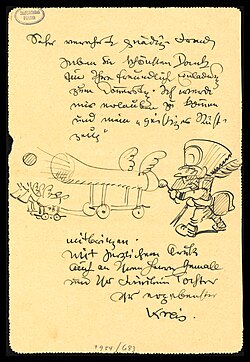 Sehr verehrte gnädige Frau
haben Sie schönsten Dank
für Ihre freundliche Einladung
zum Donnerstag. Ich werde
mir erlauben zu kommen
und mein "geistiges Rüst-
zeug"
mitbringen.
Mit herzlichem Gruß
auch an Ihren Herrn Gemahl
und Ihr Fräulein Tochter
Ihr ergebenster
Kreis.
1954/683